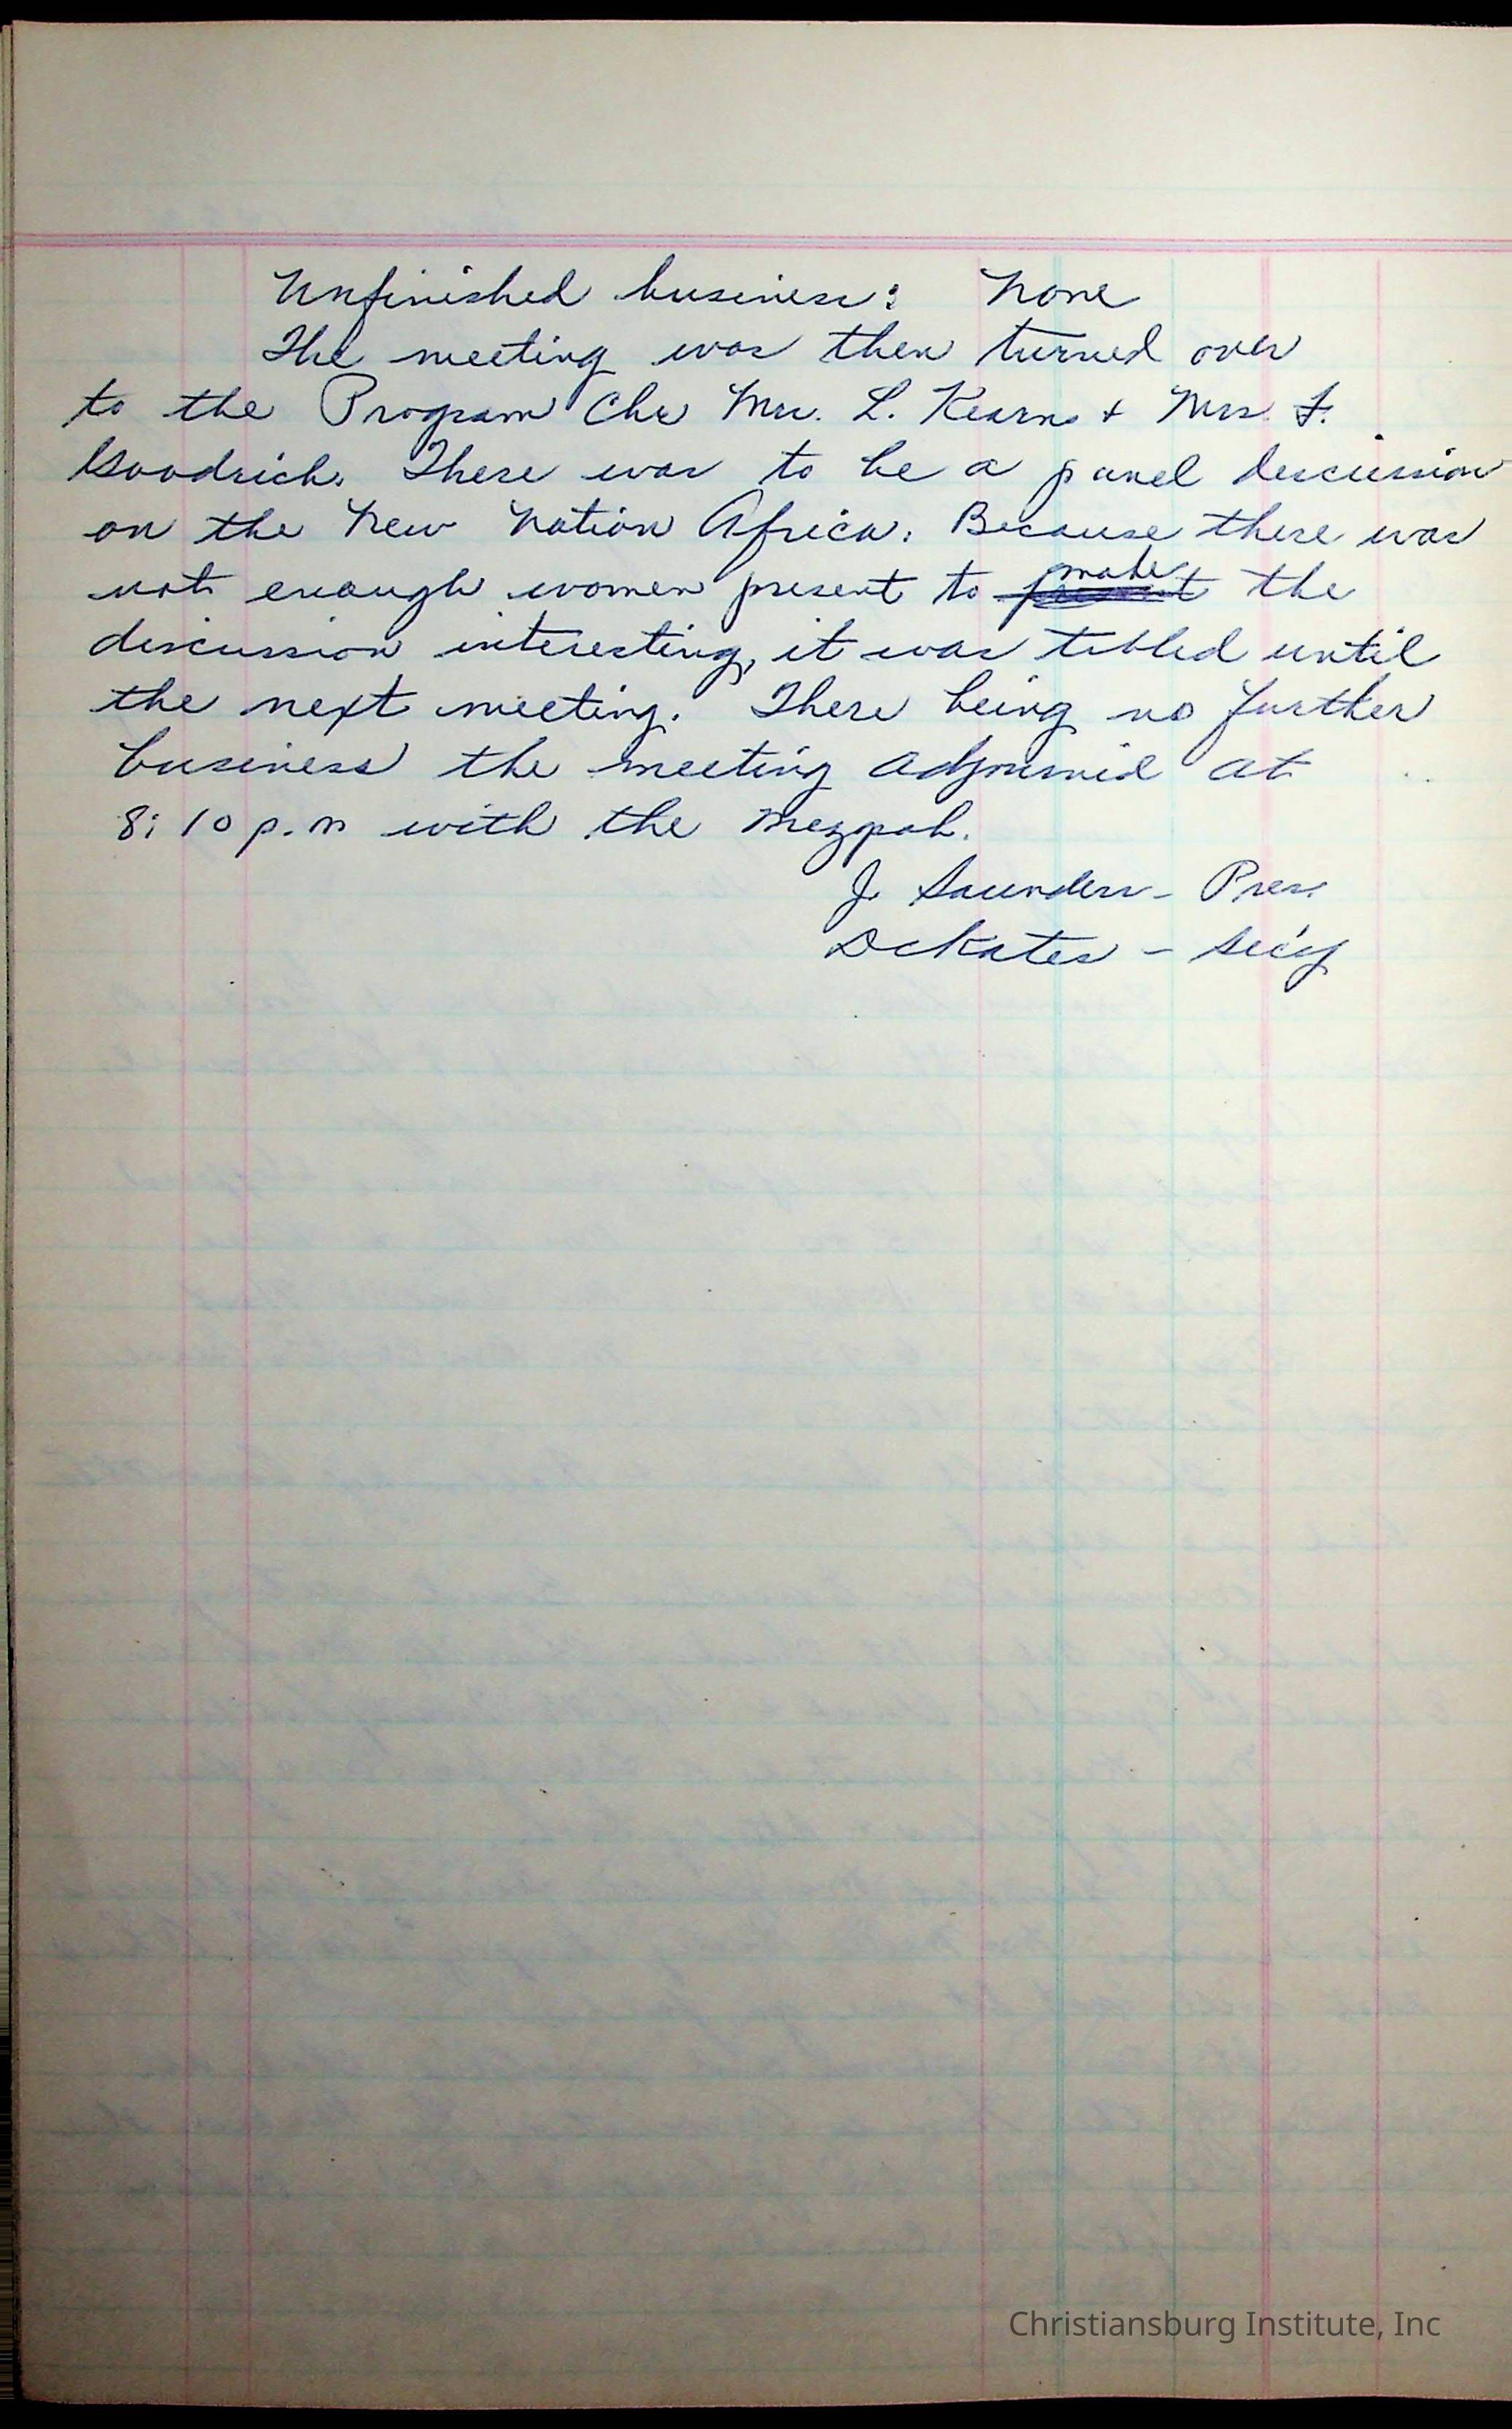 Unfinished business: None
The meeting was then turned over
to the Program Chr Mrs. L. Kearns + Mrs. F.
Goodrich. There was to be a panel discussion
on the New Nation Africa. Because there was
not enough women present to make the
discussion interesting, it was tabled until
the next meeting. There being no further
business the meeting adjourned at
8:10 p.m with the Mezpah.
J. Saunders - Pres.
D Kates - Sec'y
Christiansburg Institute, Inc